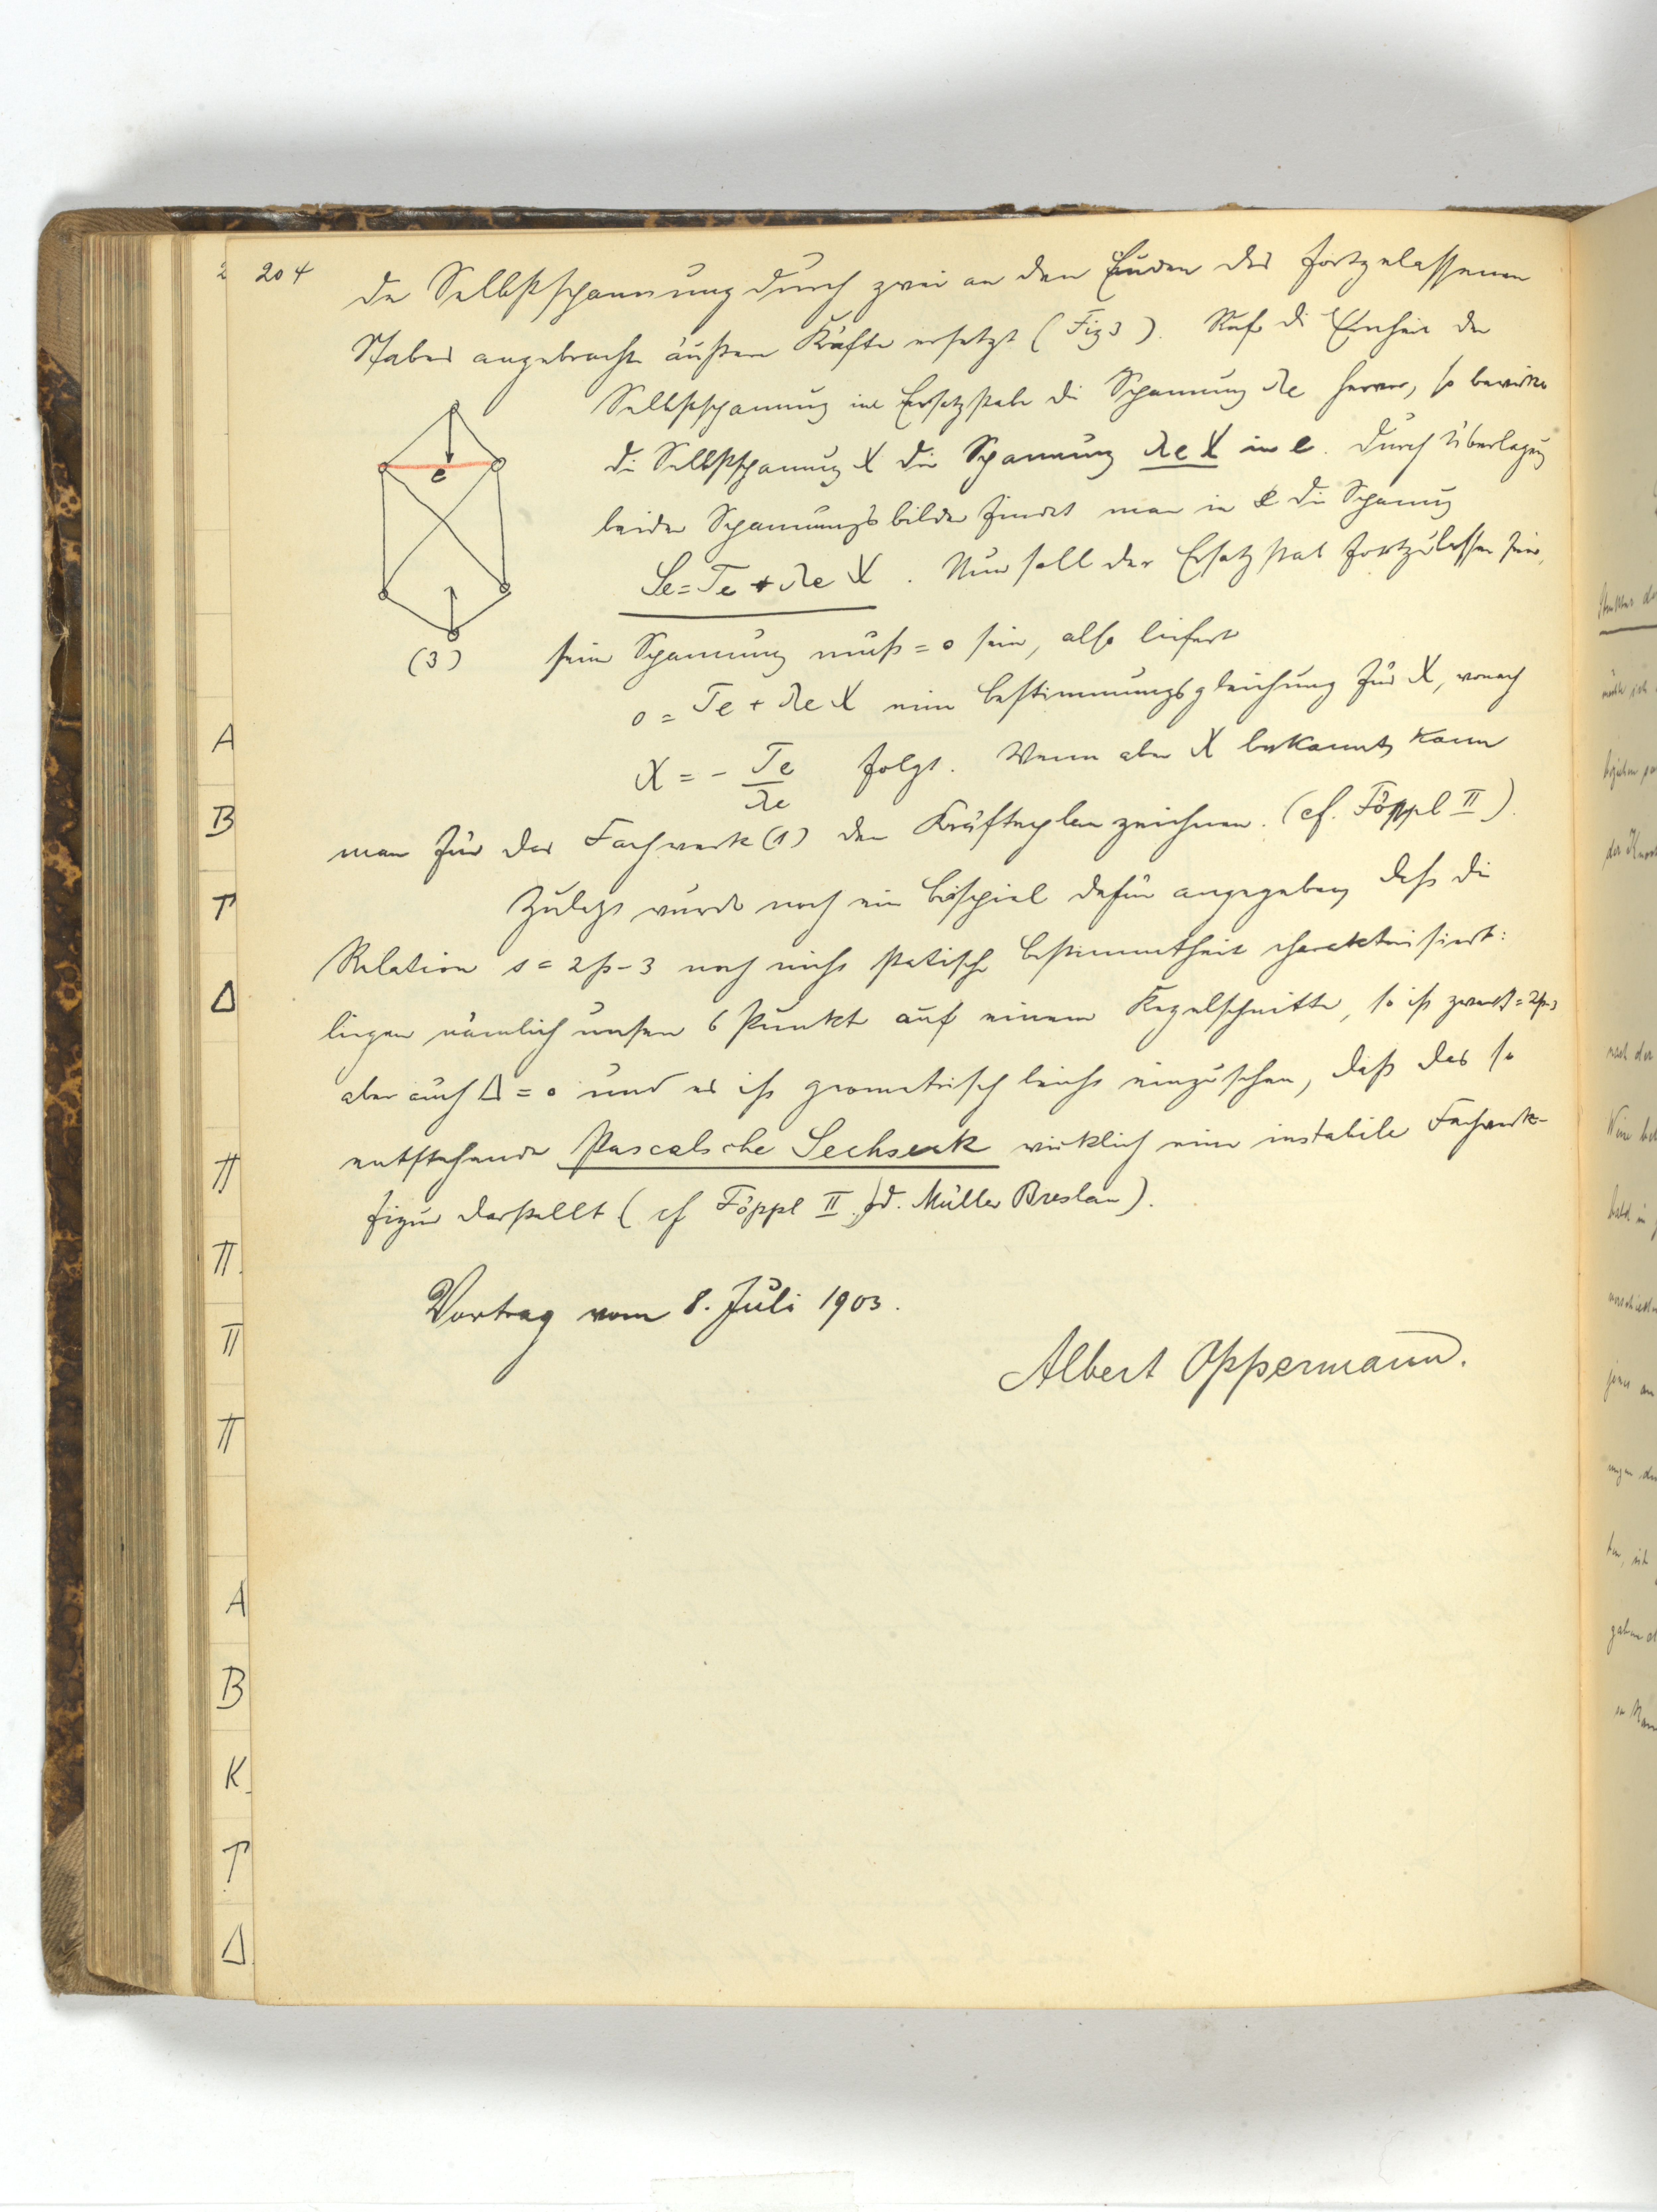 204
die Selbstspannung durch zwei an den Enden des fortgelassenen
Stabes angebrachte äußere Kräfte ersetzt (Fig 3). Ruft die Einheit der
Selbstspannung im Ersatzstabe die Spannung λe hervor, so bewirkt
die Selbstspannung X die Spannung λe X in e. Durch Überlagerung
beider Spannungsbilder findet man in e die Spannung
Se = Te + λe X. Nun soll der Ersatzstab fortzulassen sein,
seine Spannung muß = 0 sein, also liefert
0 = Te + λe X eine Bestimmungsgleichung für X, wonach
X = - Te/λe folgt. Wenn aber X bekannt, kann
man für das Fachwerk (1) den Kräfteplan zeichnen. (cf. Föppl II).
Zuletzt wurde noch ein Beispiel dafür angegeben, daß die
Relation s = 2p-3 noch nicht statische Bestimmtheit charakterisiert:
liegen nämlich unsere 6 Punkte auf einem Kegelschnitte, so ist zwar s = 2p-3
aber auch Δ = 0 und es ist geometrisch leicht einzusehen, daß das so
entstehende Pascalsche Sechseck wirklich eine instabile Fachwerk-
figur darstellt (cf Föppl II, Müller Breslau).
Vortrag vom 8. Juli 1903.
Albert Oppermann.
e
(3)
A
B
T
Δ
π
π
π
π
A
B
K
T
Δ